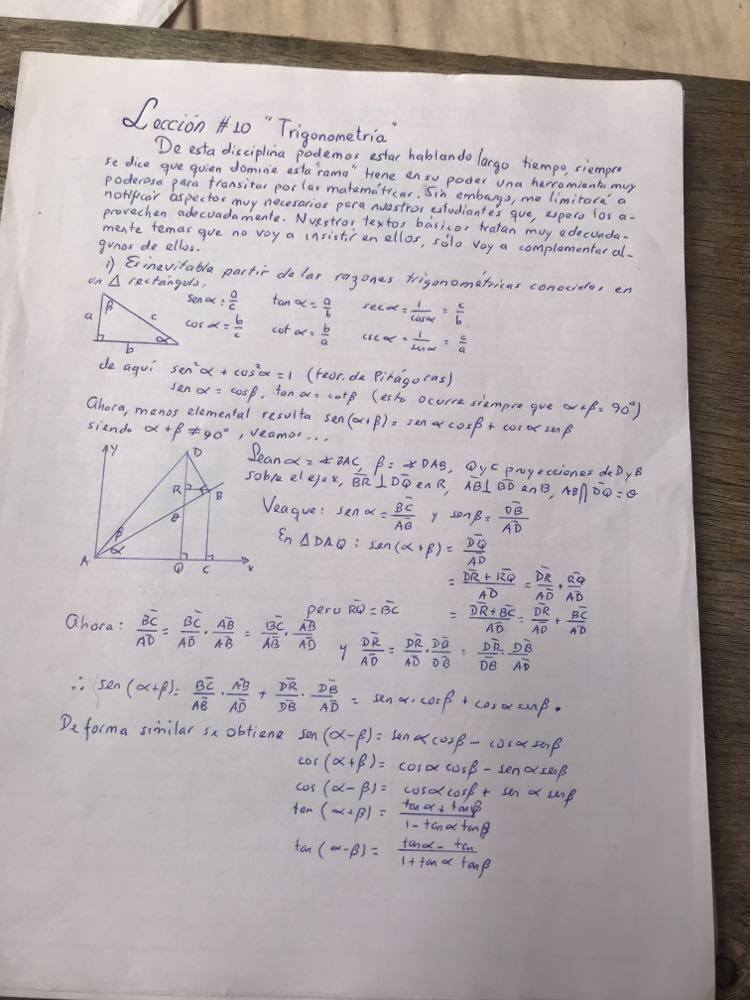 Lección #10 "Trigonometría"
De esta disciplina podemos estar hablando largo tiempo, siempre
se dice que quien domine esta "rama" tiene en su poder una herramienta muy
poderosa para transitar por las matemáticas. Sin embargo, me limitaré a
notificar aspectos muy necesarios para nuestros estudiantes que, espero los a-
provechen adecuadamente. Nuestros textos básicos tratan muy adecuada-
mente temas que no voy a insistir en ellos, sólo voy a complementar al-
gunos de ellos.
i) Es inevitable partir de las razones trigonométricas conocidas en
un Δ rectángulo.
a β c b α
sen α = a/c tan α = a/b sec α = 1/cos α = c/b
cos α = b/c cot α = b/a csc α = 1/sen α = c/a
de aquí sen²α + cos²α = 1 (teor. de Pitágoras)
sen α = cos β, tan α = cot β (esto ocurre siempre que α+β = 90°)
Ahora, menos elemental resulta sen(α+β) = sen α cos β + cos α sen β
siendo α+β ≠ 90°, veamos...
Y D R B θ β α A Q C x
Sean α = ∡BAC, β = ∡DAB, Q y C proyecciones de D y B
sobre el eje x, BR ⊥ DQ en R, AB ⊥ BD en B, AB ∩ DQ = θ
Vea que: sen α = BC/AB y sen β = DB/AD
En Δ DAQ: sen(α+β) = DQ/AD
= (DR + RQ)/AD = DR/AD + RQ/AD
pero RQ = BC = (DR + BC)/AD = DR/AD + BC/AD
Ahora: BC/AD = BC/AD · AB/AB = BC/AB · AB/AD y DR/AD = DR/AD · DB/DB = DR/DB · DB/AD
∴ sen(α+β) = BC/AB · AB/AD + DR/DB · DB/AD = sen α · cos β + cos α sen β.
De forma similar se obtiene sen(α-β) = sen α cos β - cos α sen β
cos(α+β) = cos α cos β - sen α sen β
cos(α-β) = cos α cos β + sen α sen β
tan(α+β) = (tan α + tan β)/(1 - tan α tan β)
tan(α-β) = (tan α - tan)/(1 + tan α tan β)